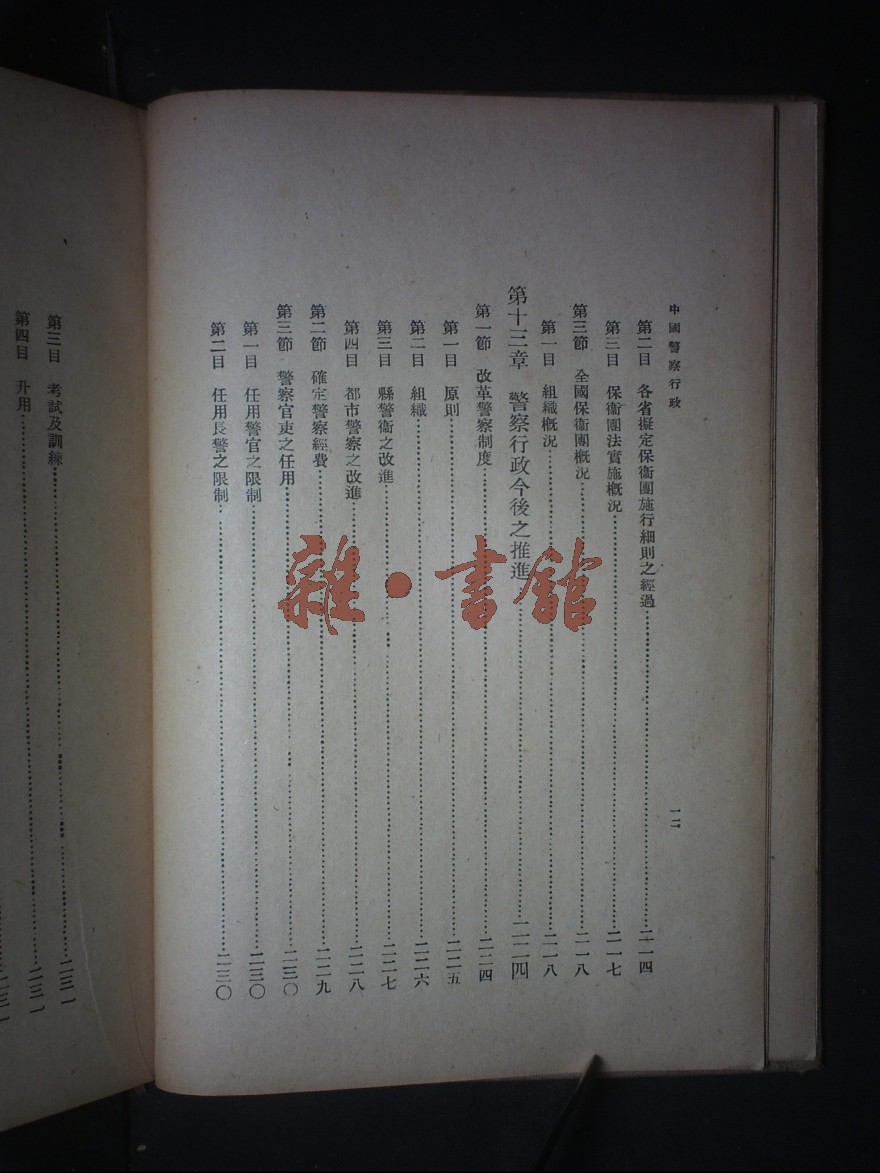 中國警察行政
一二
第二目　各省擬定保衞團施行細則之經過……二一四
第三目　保衞團法實施概況……二一七
第三節　全國保衞團概況……二一八
第一目　組織概況……二一八
第十三章　警察行政今後之推進……二二四
第一節　改革警察制度……二二四
第一目　原則……二二五
第二目　組織……二二六
第三目　縣警衞之改進……二二七
第四目　都市警察之改進……二二八
第二節　確定警察經費……二二九
第三節　警察官吏之任用……二三〇
第一目　任用警官之限制……二三〇
第二目　任用長警之限制……二三〇
第三目　考試及訓練……二三一
第四目　升用……二三一
二三一
雜・書館